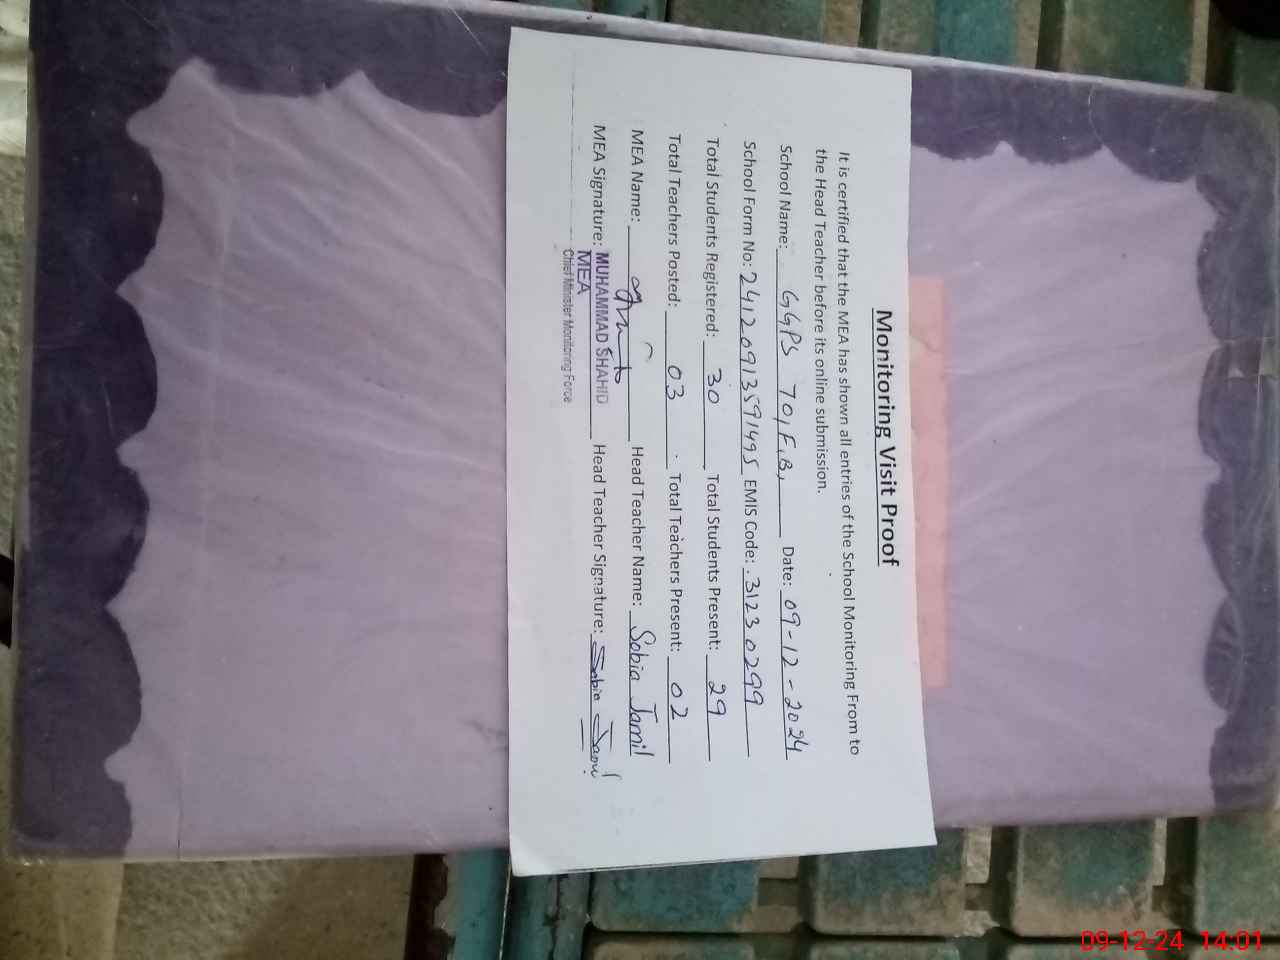 Monitoring Visit Proof
It is certified that the MEA has shown all entries of the School Monitoring From to
the Head Teacher before its online submission.
School Name: GGPS 70,F,B, Date: 09-12-2024
School Form No: 2412091359149S EMIS Code: . 31230299
Total Students Registered: 30 Total Students Present: 29
Total Teachers Posted: 03 Total Teachers Present: 02
MEA Name: Head Teacher Name: Sobia Jamil
MEA Signature: MUHAMMAD SHAHID Head Teacher Signature: Sobia Jamil
MEA
Chief Minister Monitoring Force
09-12-24 14:01